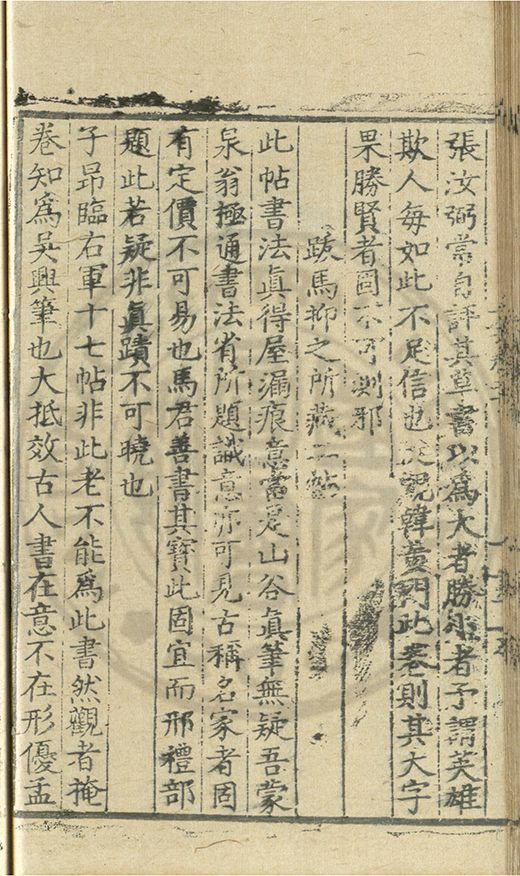 張汝弼嘗自評其草書以為大者勝小者予謂英雄
欺人每如此不足信也及觀韓黃門此卷則其大字
果勝賢者固不可測邪
跋馬抑之所藏二帖
此帖書法眞得屋漏痕意當是山谷眞筆無疑吾蒙
泉翁極通書法省所題識意亦可見古稱名家者固
有定價不可易也馬君善書其寶此固宜而邢禮部
題此若疑非眞蹟不可曉也
子昂臨右軍十七帖非此老不能為此書然觀者掩
卷知為吳興筆也大抵效古人書在意不在形優孟